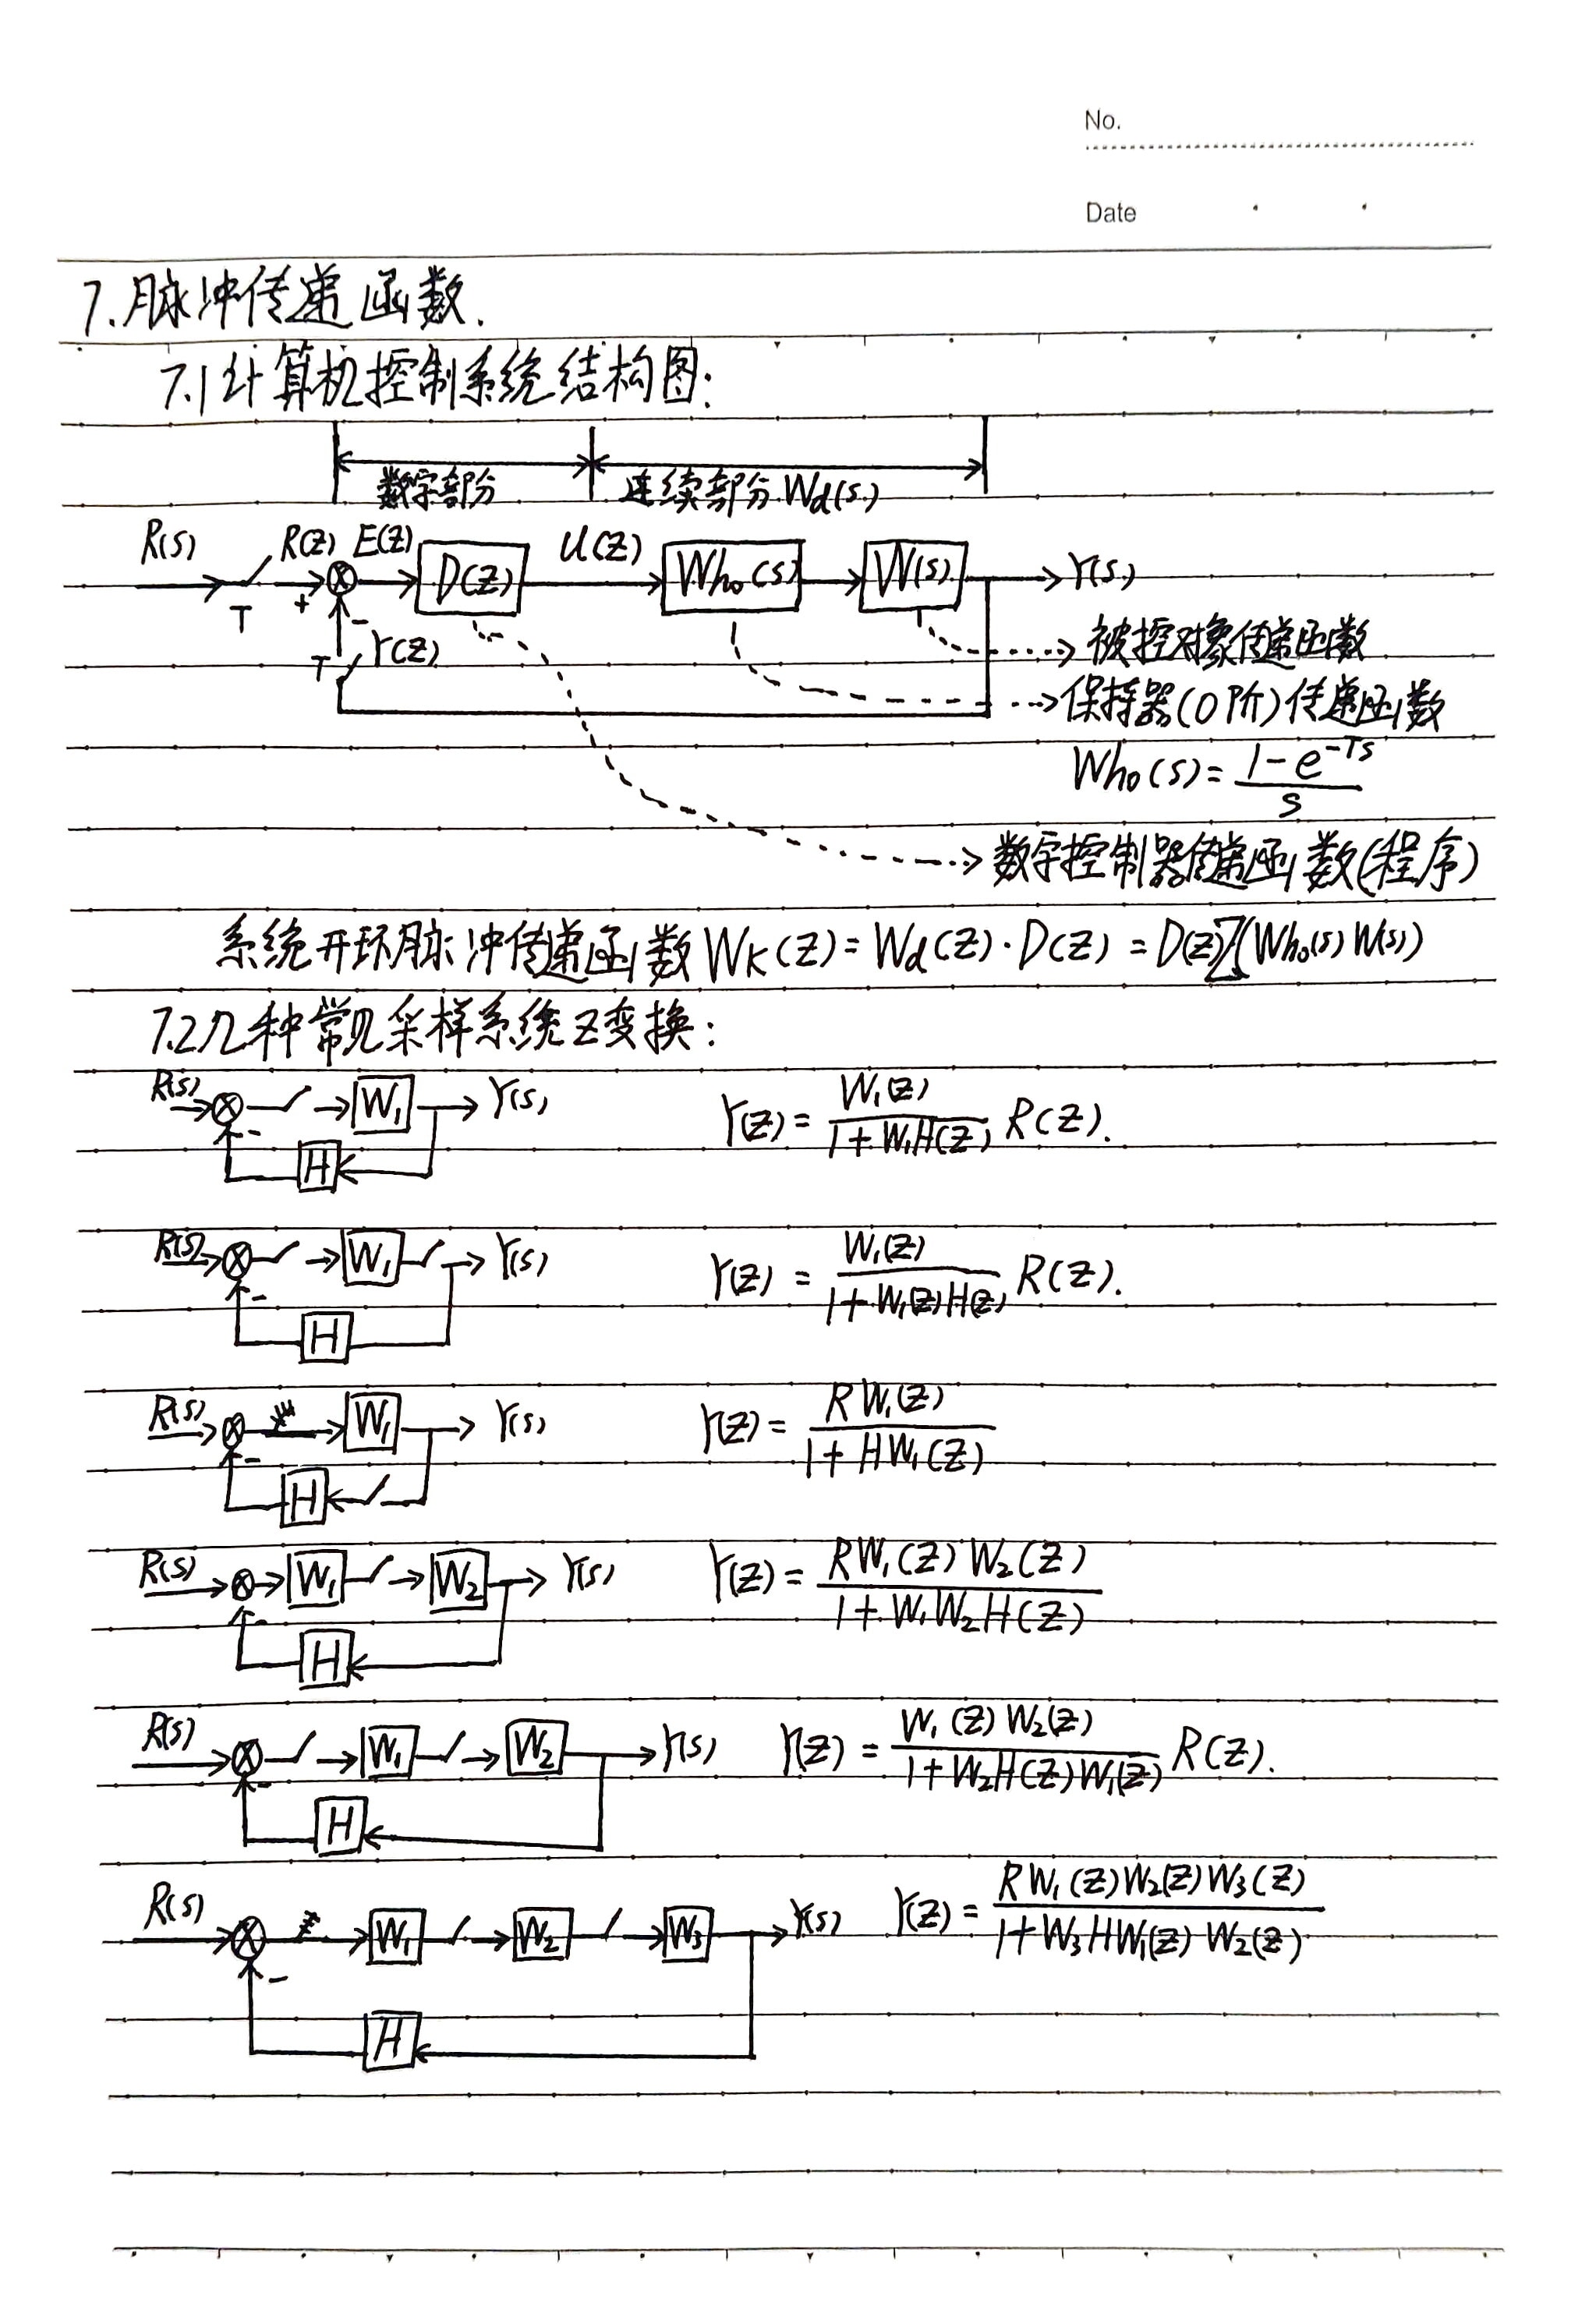 No.
Date
7.脉冲传递函数.
7.1计算机控制系统结构图:
数字部分 连续部分 Wd(s)
R(s) R(z) E(z) D(z) U(z) Who(s) W(s) Y(s)
T + -
T Y(z)
被控对象传递函数
保持器(0阶)传递函数
Who(s)=(1-e^-Ts)/s
数字控制器传递函数(程序)
系统开环脉冲传递函数 WK(z)=Wd(z)·D(z)=D(z)Z(Who(s)W(s))
7.2几种常见采样系统z变换:
R(s) W₁ Y(s) Y(z)=W₁(z)/(1+W₁H(z)) R(z).
- H
R(s) W₁ Y(s) Y(z)=W₁(z)/(1+W₁(z)H(z)) R(z).
- H
R(s) W₁ Y(s) Y(z)=RW₁(z)/(1+HW₁(z))
- H
R(s) W₁ W₂ Y(s) Y(z)=RW₁(z)W₂(z)/(1+W₁W₂H(z))
- H
R(s) W₁ W₂ Y(s) Y(z)=W₁(z)W₂(z)/(1+W₂H(z)W₁(z)) R(z).
- H
R(s) W₁ W₂ W₃ Y(s) Y(z)=RW₁(z)W₂(z)W₃(z)/(1+W₃HW₁(z)W₂(z))
- H